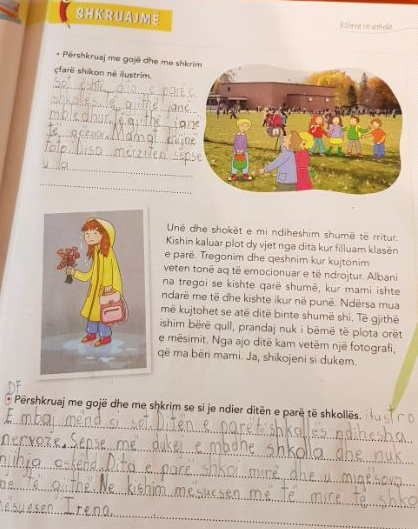 SHKRUAJMË
• Përshkruaj me gojë dhe me shkrim
çfarë shikon në ilustrim.
Sot është dita e parë e
shkollës. Të gjithë janë
mbledhur. Të gjithë janë
të gëzuar. Mamat bëjnë
foto. Disa mërziten sepse
Unë dhe shokët e mi ndiheshim shumë të rritur.
Kishin kaluar plot dy vjet nga dita kur filluam klasën
e parë. Tregonim dhe qeshnim kur kujtonim
veten tonë aq të emocionuar e të ndrojtur. Albani
na tregoi se kishte qarë shumë, kur mami ishte
ndarë me të dhe kishte ikur në punë. Ndërsa mua
më kujtohet se atë ditë binte shumë shi. Të gjithë
ishim bërë qull, prandaj nuk i bëmë të plota orët
e mësimit. Nga ajo ditë kam vetëm një fotografi,
që ma bëri mami. Ja, shikojeni si dukem.
DF
Përshkruaj me gojë dhe me shkrim se si je ndier ditën e parë të shkollës.
E mbaj mend si sot. Ditën e parë të shkollës ndihesha
nervoze. Sepse më dukej e madhe shkolla dhe nuk
njihja askënd. Dita e parë shkoi mirë dhe u miqësova
me të gjithë. Ne kishim mësuesen më të mirë të shko
mësuesen Irena.